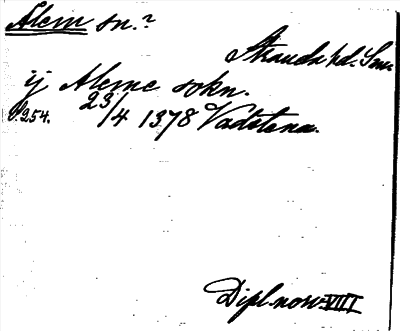 Ålem sn.?
Stranda hd. Sm.
ij Aleme sokn.
s.254. 23/4 1378 Vadstena.
Dipl. norv. VIII